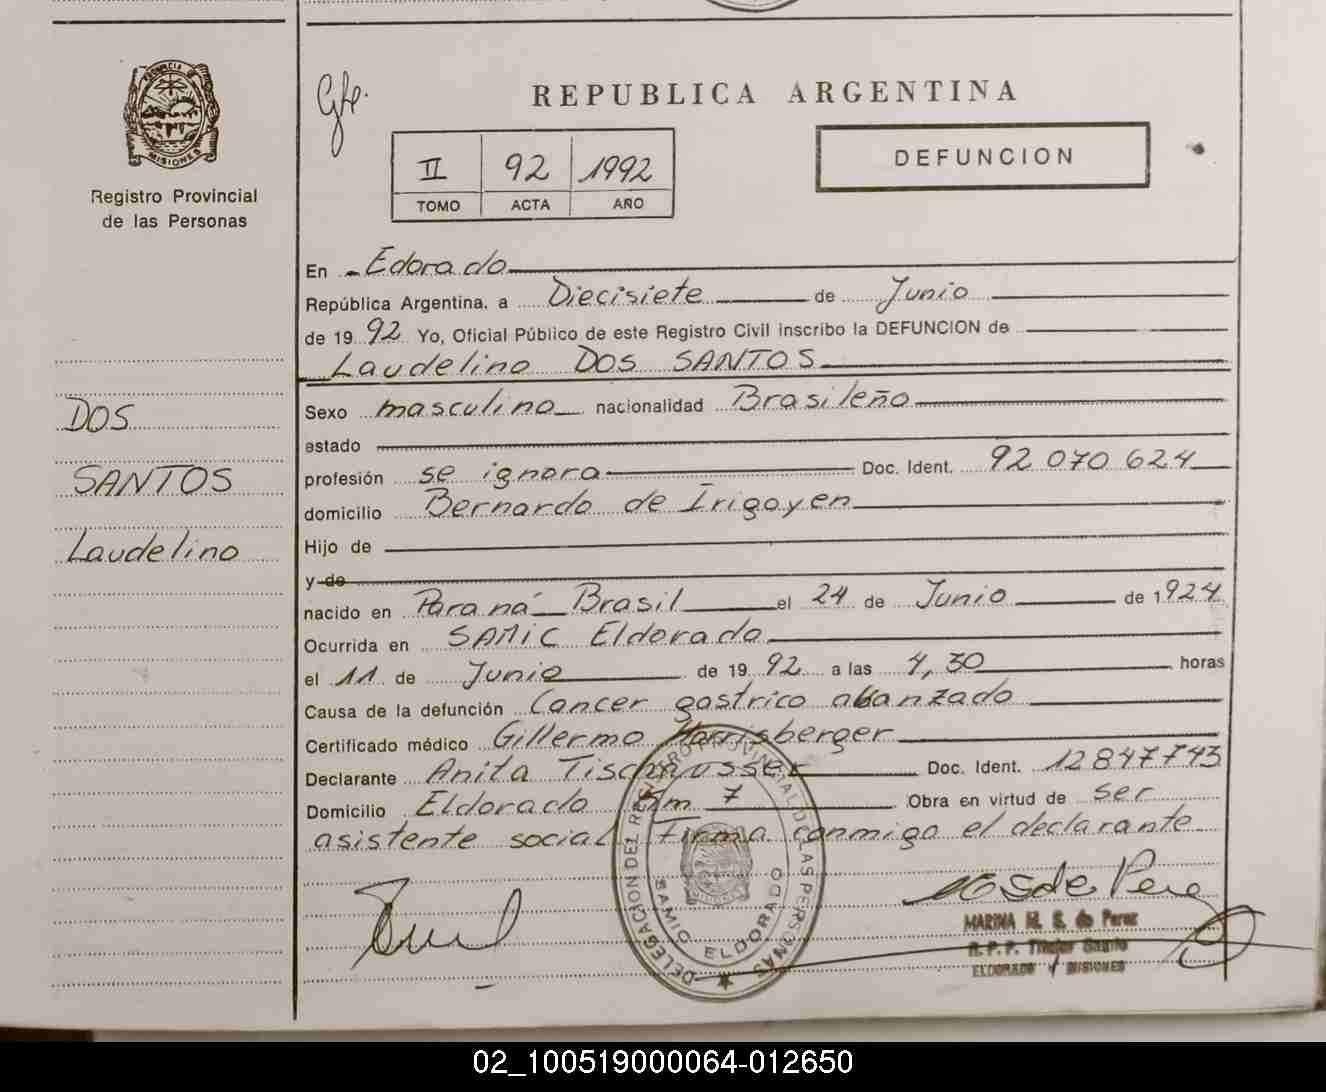 PROVINCIA DE
MISIONES
Registro Provincial
de las Personas
DOS
SANTOS
Laudelino
REPUBLICA ARGENTINA
II 92 1992
TOMO ACTA AÑO
DEFUNCION
En Edorado
República Argentina, a Diecisiete de Junio
de 1992 Yo, Oficial Público de este Registro Civil inscribo la DEFUNCION de
Laudelino DOS SANTOS
Sexo masculino nacionalidad Brasileño
estado
profesión se ignora Doc. Ident. 92 070 624
domicilio Bernardo de Irigoyen
Hijo de
y de
nacido en Paraná Brasil el 24 de Junio de 1924
Ocurrida en SAMIC Eldorado
el 11 de Junio de 1992 a las 4,30 horas
Causa de la defunción Cancer gastrico abanzado
Certificado médico Gillermo Harrisberger
Declarante Anita Tischmusser Doc. Ident. 12847743
Domicilio Eldorado Km 7 Obra en virtud de ser
asistente social Firma conmigo el declarante
DELEGACION DEL REGISTRO PROVINCIAL DE LAS PERSONAS
SAMIC ELDORADO
de Perez
MARINA M. S. de Perez
R.P.P. Titular Samic
ELDORADO MISIONES
02_100519000064-012650